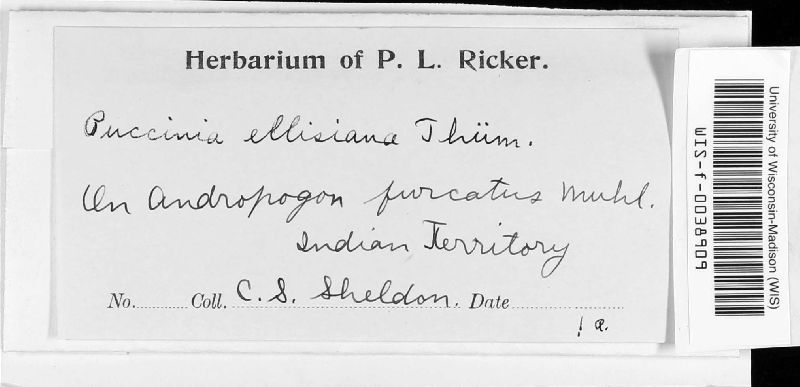 Herbarium of P. L. Ricker.
Puccinia ellisiana Thüm.
On Andropogon furcatus Muhl.
Indian Territory
No. Coll. C. S. Sheldon. Date
! a.
University of Wisconsin-Madison (WIS)
WIS-f-0038909